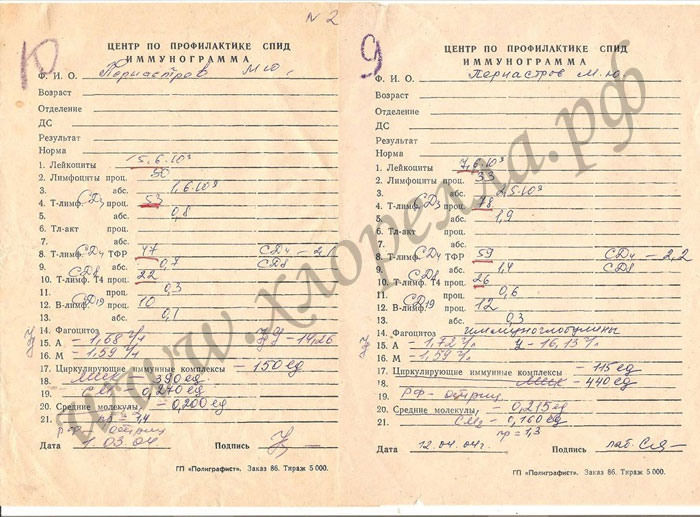 N 2
10
ЦЕНТР ПО ПРОФИЛАКТИКЕ СПИД
ИММУНОГРАММА
Ф. И. О. М Ю,
Возраст
Отделение
ДС
Результат
Норма
1. Лейкоциты 5,6·10⁹
2. Лимфоциты проц. 30
3. абс. 1,6·10⁹
4. Т-лимф. CD3 проц. 53
5. абс. 0,8
6. Тл-акт проц.
7. абс.
8. Т-лимф. CD4 ТФР 47 CD4 — 2,1
9. абс. 0,7 CD8
10. Т-лимф. Т4 CD8 проц. 22
11. проц. 0,3
12. В-лимф. CD19 проц. 10
13. абс. 0,1
14. Фагоцитоз
15. А — 1,68 г/л — 14,26
16. М — 1,59 г/л
17. Циркулирующие иммунные комплексы — 150 ед
18. 390 ед
19. — 0,270 ед
20. Средние молекулы — 0,200 ед
21.
Дата 1.03.04 Подпись
ГП «Полиграфист». Заказ 86. Тираж 5 000.
9
ЦЕНТР ПО ПРОФИЛАКТИКЕ СПИД
ИММУНОГРАММА
Ф. И. О. М. Ю.
Возраст
Отделение
ДС
Результат
Норма
1. Лейкоциты 7,6·10⁹
2. Лимфоциты проц. 33
3. абс. 2,5·10⁹
4. Т-лимф. CD3 проц. 78
5. абс. 1,9
6. Тл-акт проц.
7. абс.
8. Т-лимф. CD4 ТФР 59 CD4 — 2,2
9. абс. 1,4 CD8
10. Т-лимф. Т4 CD8 проц. 26
11. проц. 0,6
12. В-лимф. CD19 проц. 12
13. абс. 0,3
14. Фагоцитоз иммуноглобулины
15. А — 1,72 г/л — 16,13 г/л
16. М — 1,59 г/л
17. Циркулирующие иммунные комплексы — 115 ед
18. — 440 ед
19. РФ - отриц
20. Средние молекулы — 0,215 ед
21. — 0,160 ед
пр = 1,3
Дата 12.04.04г Подпись
ГП «Полиграфист». Заказ 86. Тираж 5 000.
www.хлорелла.рф